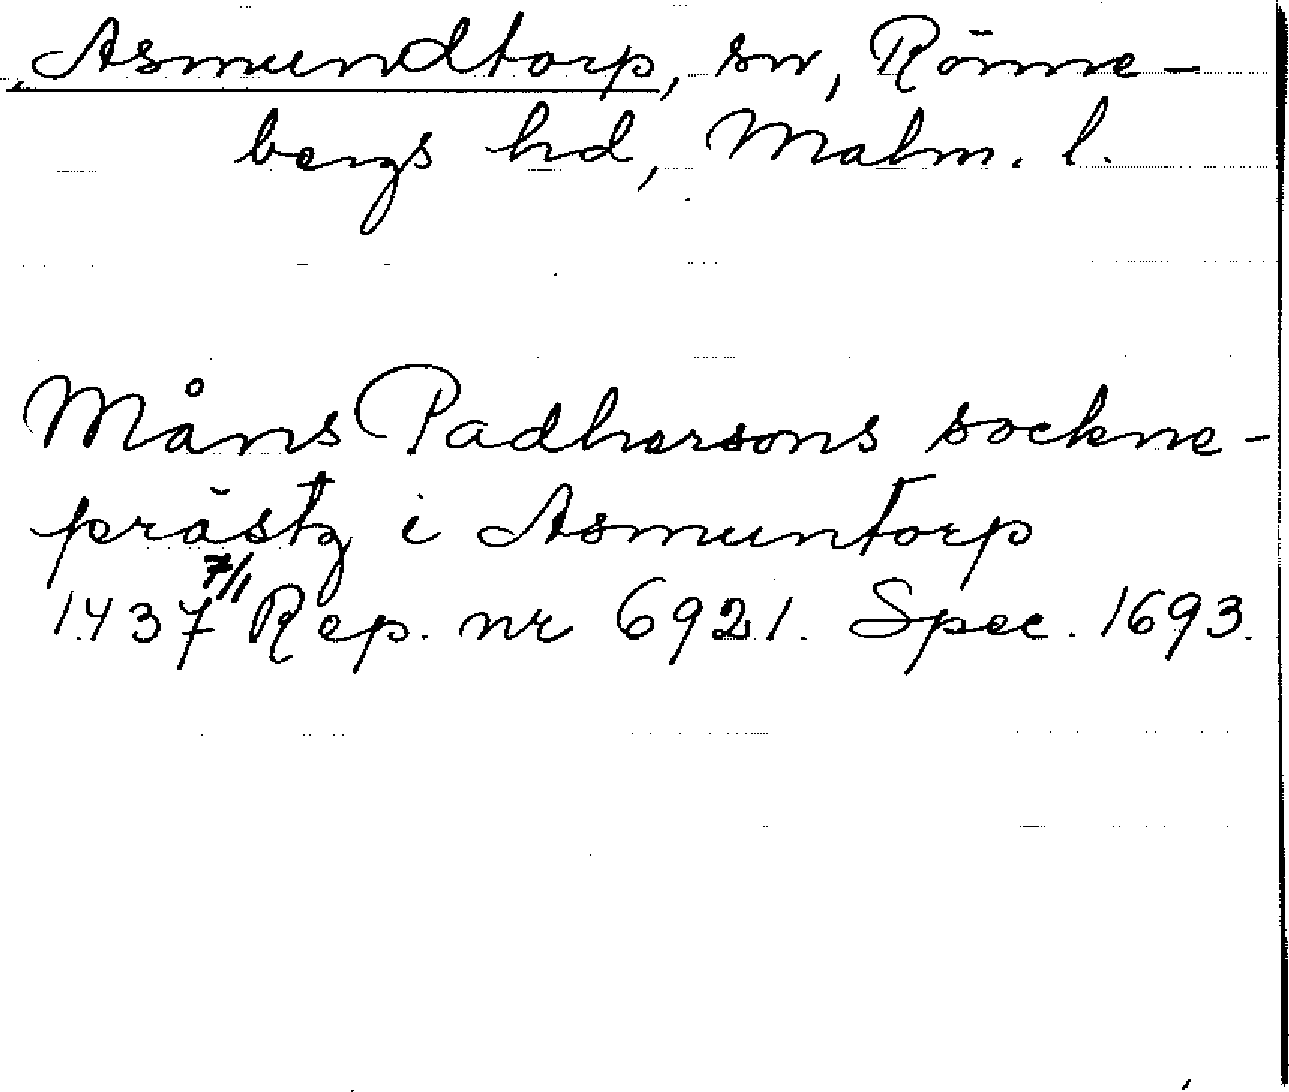 Asmundtorp, sn, Rönne-
bergs hd, Malm. l.
Måns Padhersons sockne-
prästz i Asmuntorp
1437 7/1 Rep. nr 6921. Spec. 1693.